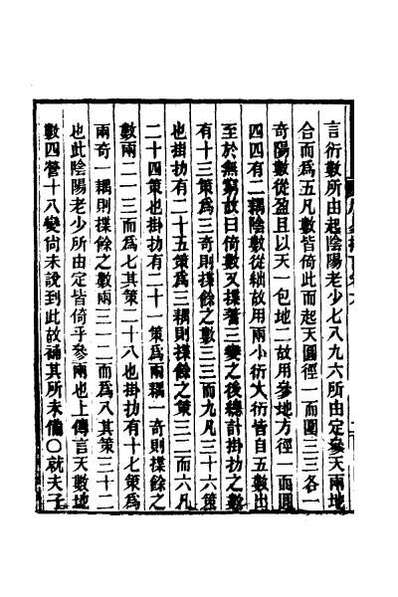 言衍數所由起陰陽老少七八九六所由定參天兩地
合而爲五凡數皆倚此而起天圓徑一而圍三三各一
奇陽數從盈且以天一包地二故用參地方徑一而圍
四四有二耦陰數從絀故用兩小衍大衍皆自五數出
至於無窮故曰倚數又揲蓍三變之後總計掛扐之數
有十三策爲三奇則揲餘之數三三而九凡三十六策
也掛扐有二十五策爲三耦則揲餘之策三二而六凡
二十四策也掛扐有二十一策爲兩耦一奇則揲餘之
數兩二一三而爲七其策二十八也掛扐有十七策爲
兩奇一耦則揲餘之數兩三一二而爲八其策三十二
也此陰陽老少所由定皆倚乎參兩也上傳言天數地
數四營十八變尙未說到此故補其所未備○就夫子